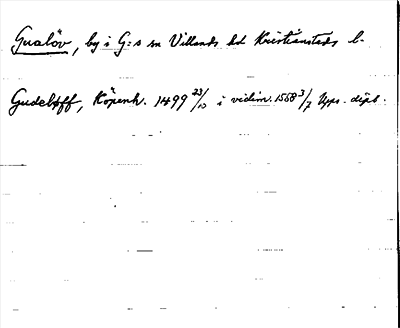 Gualöv, by i G:s sn Villands hd Kristianstads l.
Gudeløff, Köpenh. 1499 23/10 i vidim. 1568 3/7 Upps. dipl.